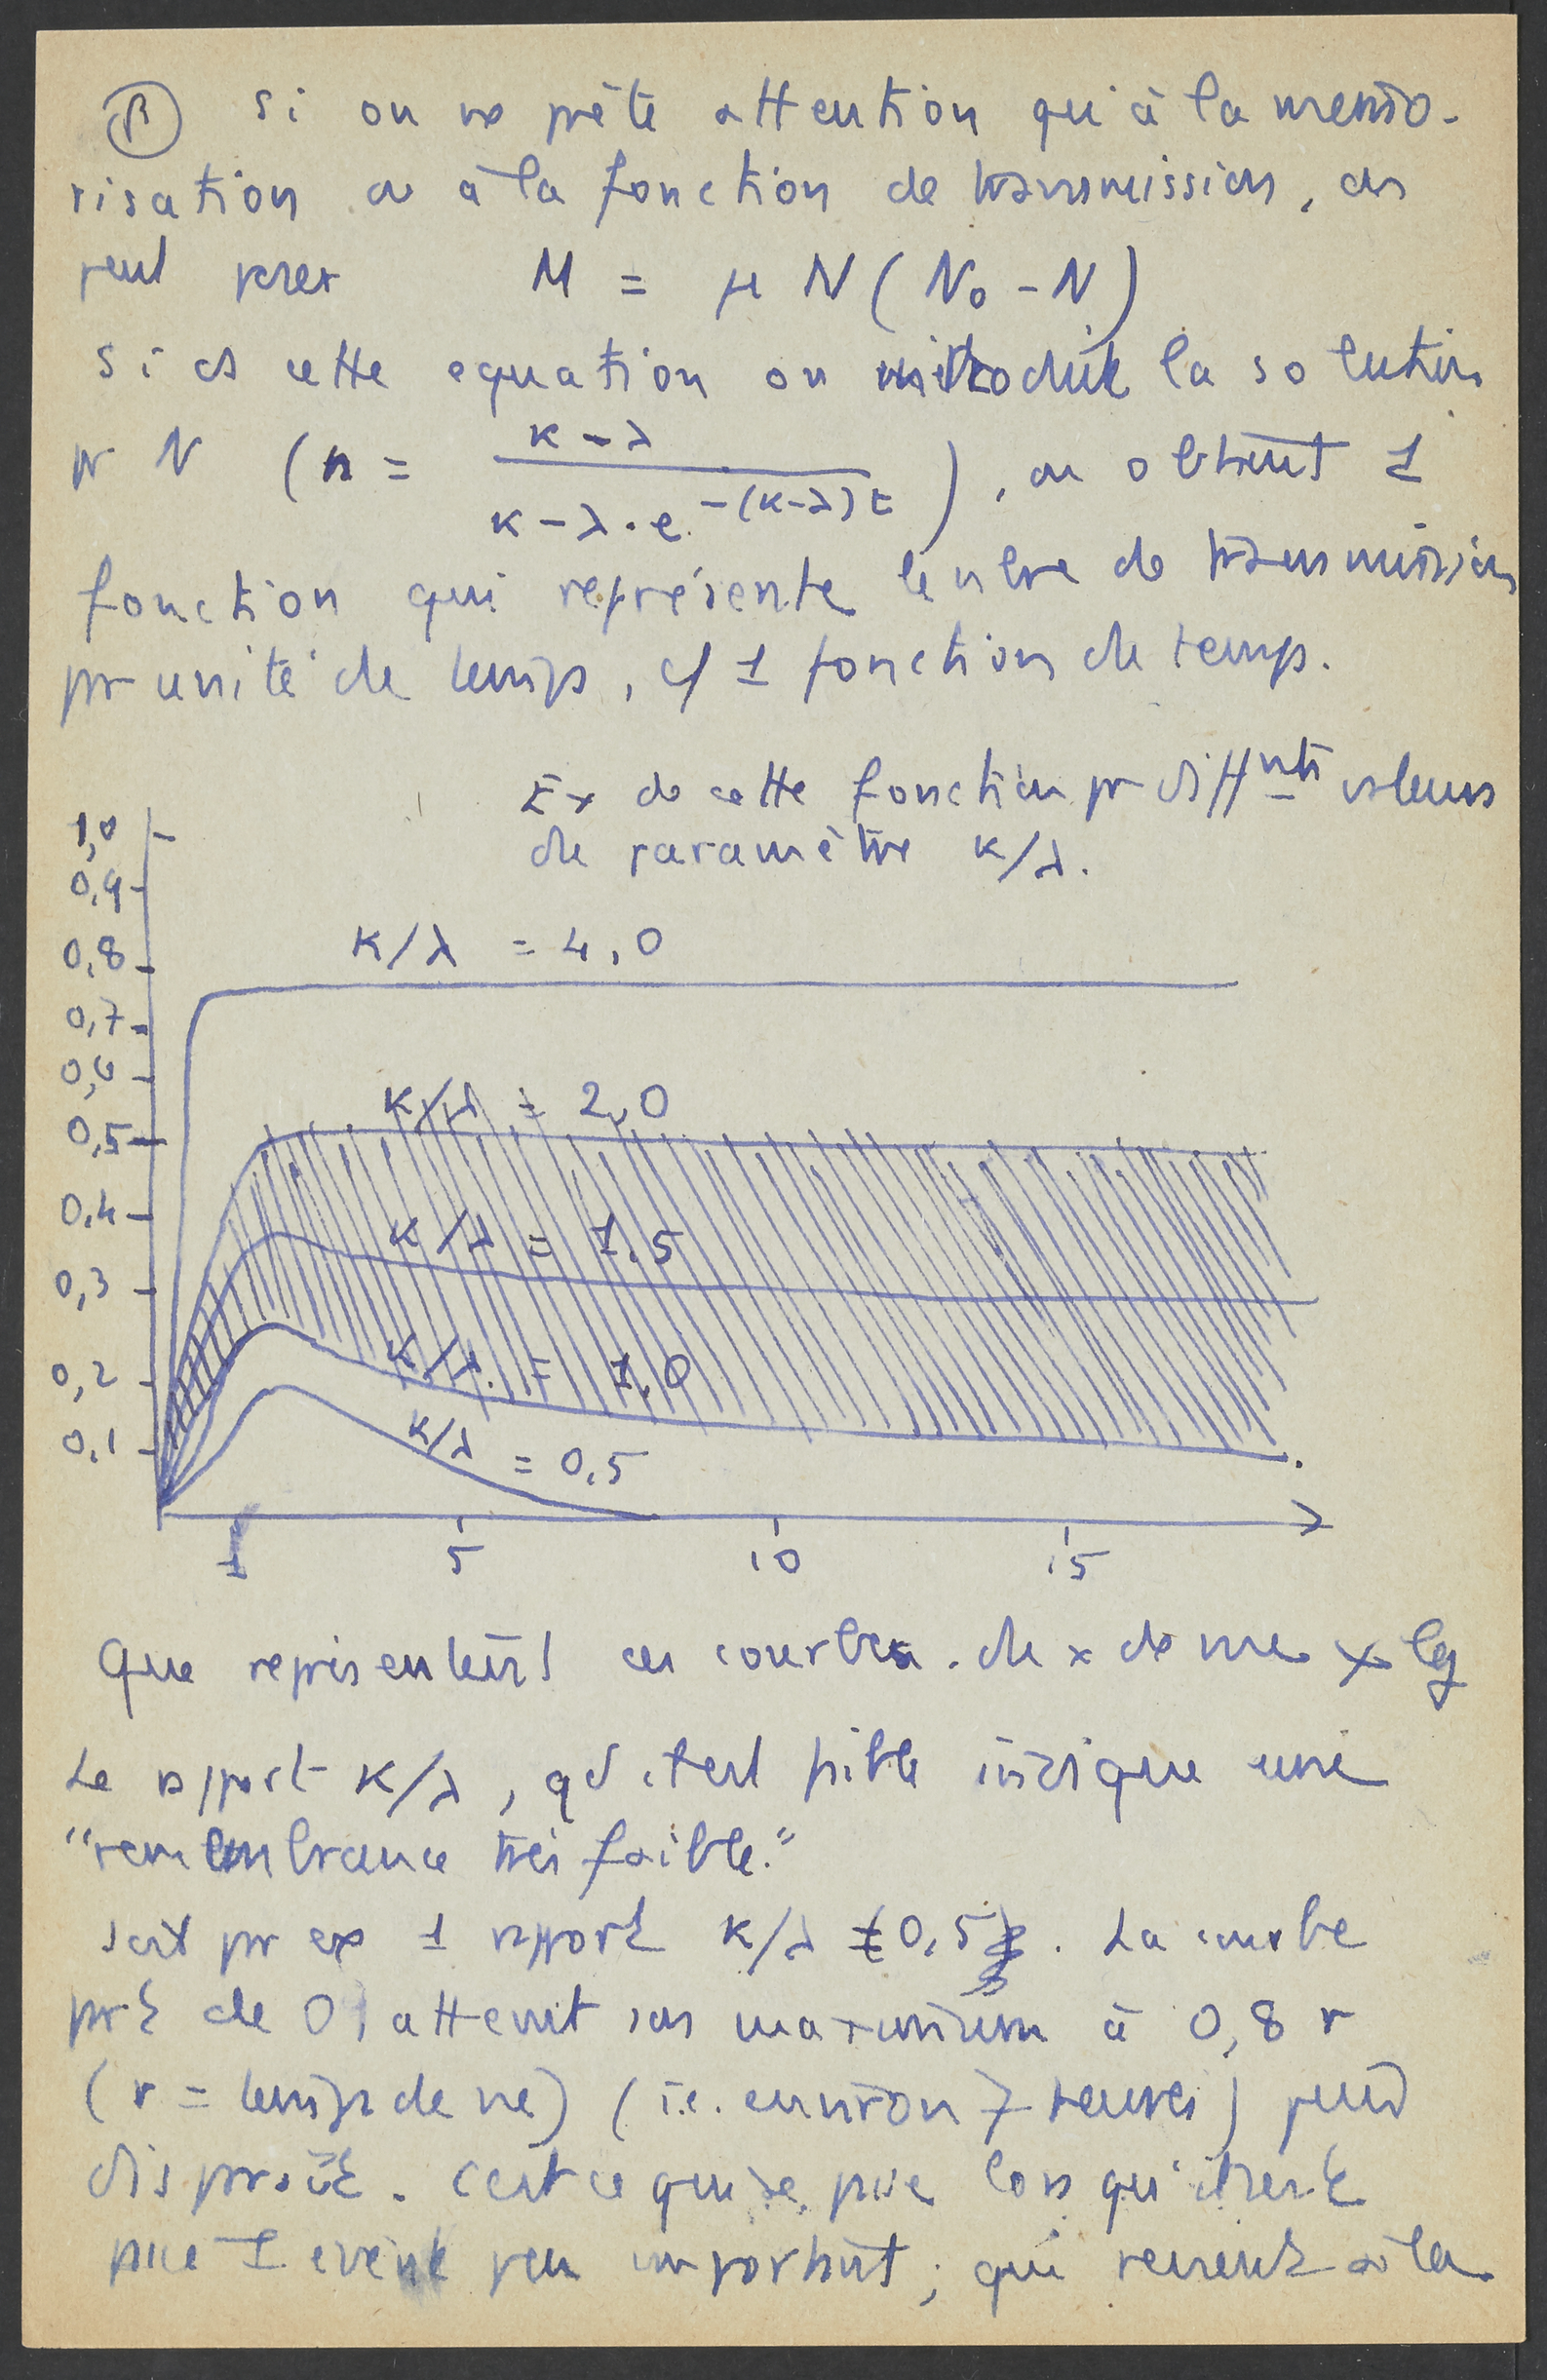 β si on ne prête attention qu'à la mémo-
risation ou à la fonction de transmission, on
peut poser M = μ N (N₀ - N)
si ds cette equation on introduit la solution
pr N (n = κ - λ / κ - λ . e^-(κ-λ)t ), on obtient 1
fonction qui représente le nbre de transmissions
pr unité de temps, c/ 1 fonction de temps.
Ex de cette fonction pr diffnts valeurs
de paramètre κ/λ.
1,0
0,9
0,8
κ/λ = 4,0
0,7
0,6
κ/λ = 2,0
0,5
0,4
κ/λ = 1,5
0,3
0,2
κ/λ = 1,0
0,1
κ/λ = 0,5
1 5 10 15
Que représentent ces courbes.
Le rapport κ/λ, qd il est faible indique une
"remembrance très faible."
soit pr ex 1 rapport κ/λ = 0,5. La courbe
prt de 0, atteint son maximum à 0,8 r
(r = temps de vie) (i.e. environ 7 heures) puis
disparaît. C'est ce qui se passe lorsqu'il s'est
passé 1 évent peu important, qui revient à la